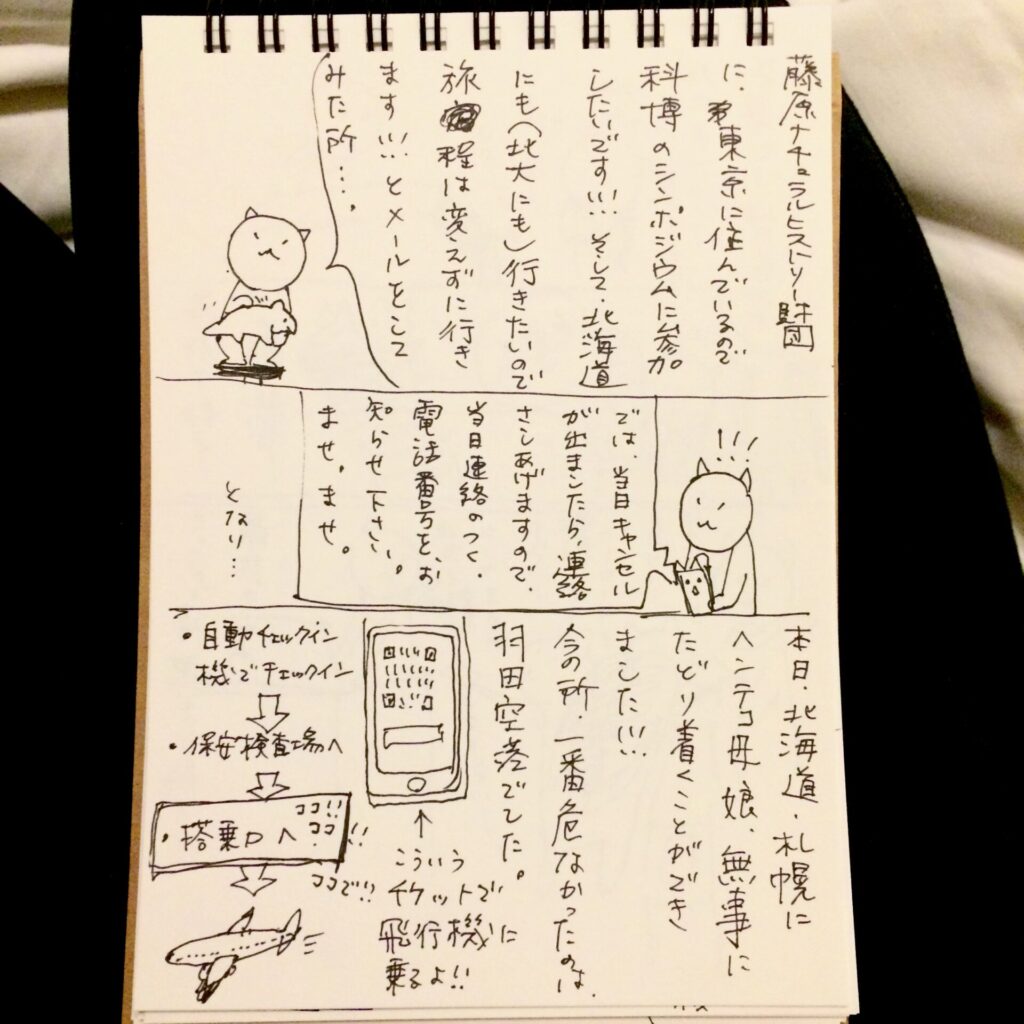 藤原ナチュラルヒストリー財団
に、東京に住んでいるので
科博のシンポジウムに参加
したいです!!!そして、北海道
にも(北大にも)行きたいので
旅程は変えずに行き
ます!!!とメールをして
みた所...。
!!!
では、当日キャンセル
が出ましたら、連絡
さしあげますので、
当日連絡のつく、
電話番号を、お
知らせ下さい。
ませ。ませ。
となり...
本日、北海道・札幌に
ヘンテコ母娘、無事に
たどり着くことができ
ました!!!!
今の所、一番危なかったのは、
羽田空港でした。
↑
こういう
チケットで
飛行機に
乗るよ!!
・自動チェックイン
機でチェックイン
・保安検査場へ
・搭乗口へ
ココ!!
ココ!!
ココで!!